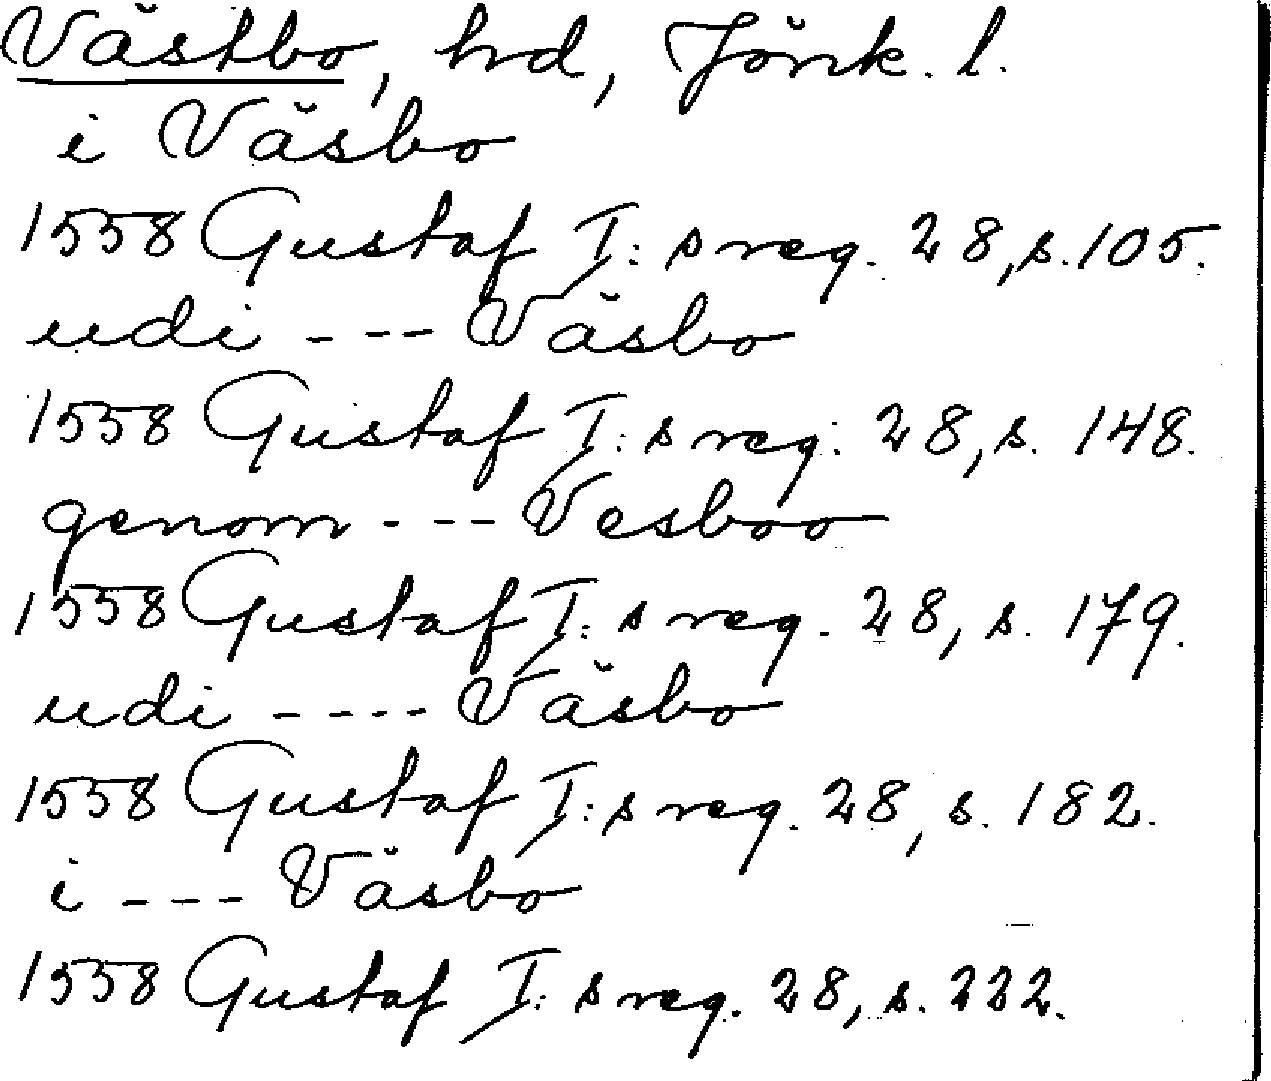 Västbo, hd, Jönk. l.
i Väsbo
1558 Gustaf I:s reg. 28, s. 105.
udi --- Väsbo
1558 Gustaf I:s reg. 28, s. 148.
genom --- Vesboo
1558 Gustaf I:s reg. 28, s. 179.
udi ---- Väsbo
1558 Gustaf I:s reg. 28, s. 182.
i --- Väsbo
1558 Gustaf I:s reg. 28, s. 222.